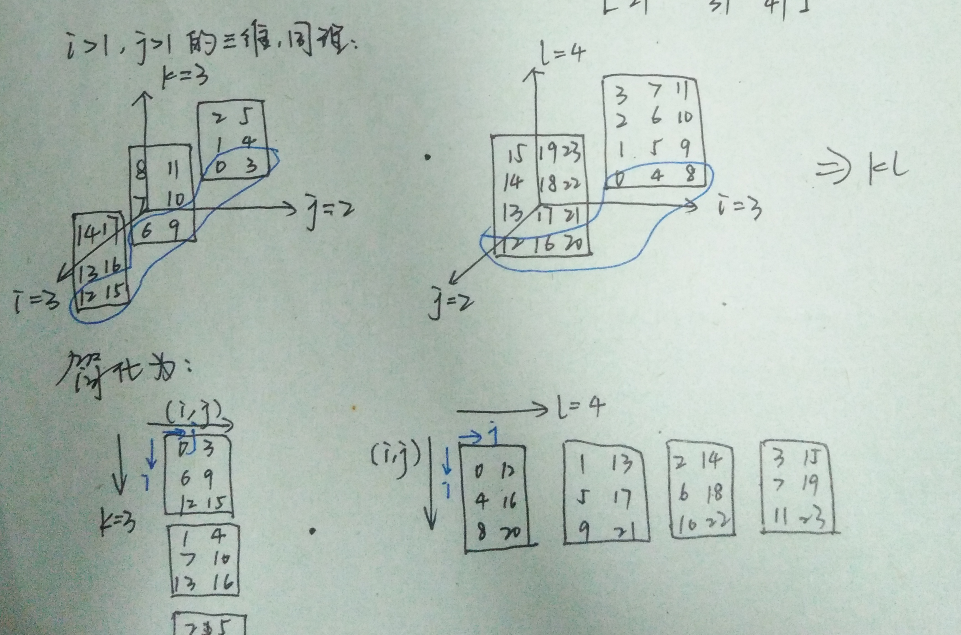 [ 21 31 41 ]
i>1, j>1 的三维,同理:
k=3
2 5
1 4
0 3
8 11
7 10
6 9
14 17
13 16
12 15
j=2
i=3
l=4
3 7 11
2 6 10
1 5 9
0 4 8
15 19 23
14 18 22
13 17 21
12 16 20
i=3
j=2
⇒ kl
简化为:
(i,j)
j
i
k=3
0 3
6 9
12 15
1 4
7 10
13 16
2 5
l=4
(i,j)
j
i
0 12
4 16
8 20
1 13
5 17
9 21
2 14
6 18
10 22
3 15
7 19
11 23